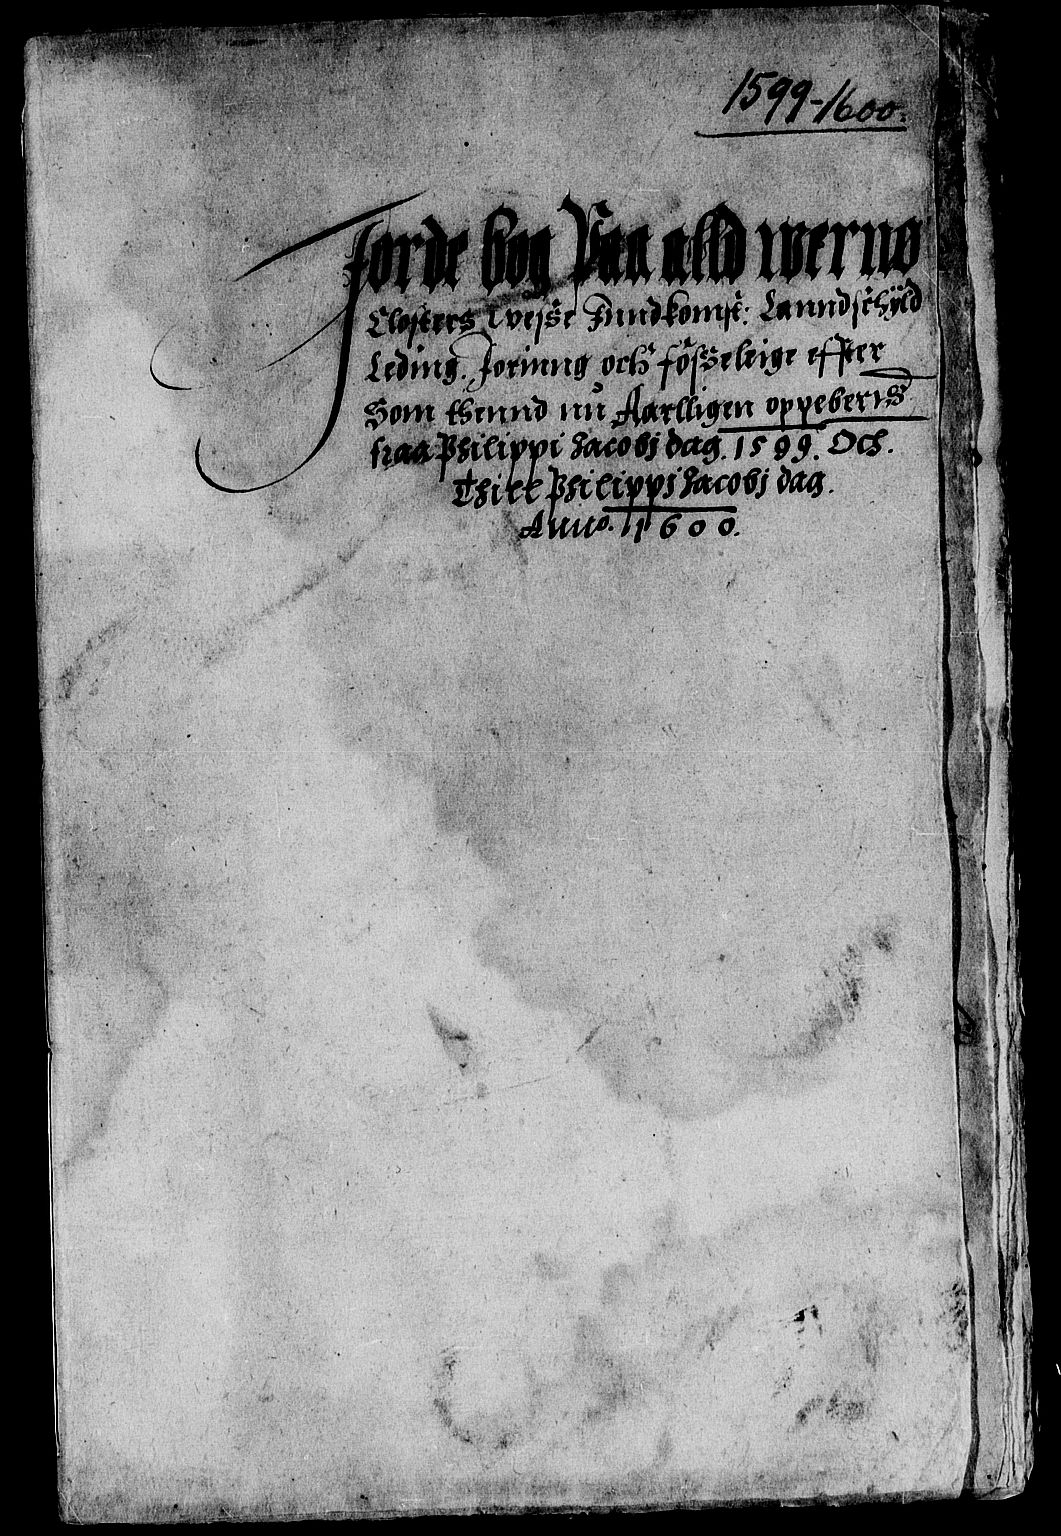 1599-1600.
Jorde bog Paa alld wernø
Closters Visse Inndkomst: Lanndschÿld
Leding. Foering och fosseleige effter
Som thennd nu Aarlligen oppeberis
fraa Philippi Jacobj dag. 1599. Och.
Thill Philippj Jacobj dag.
Anno. 1600.